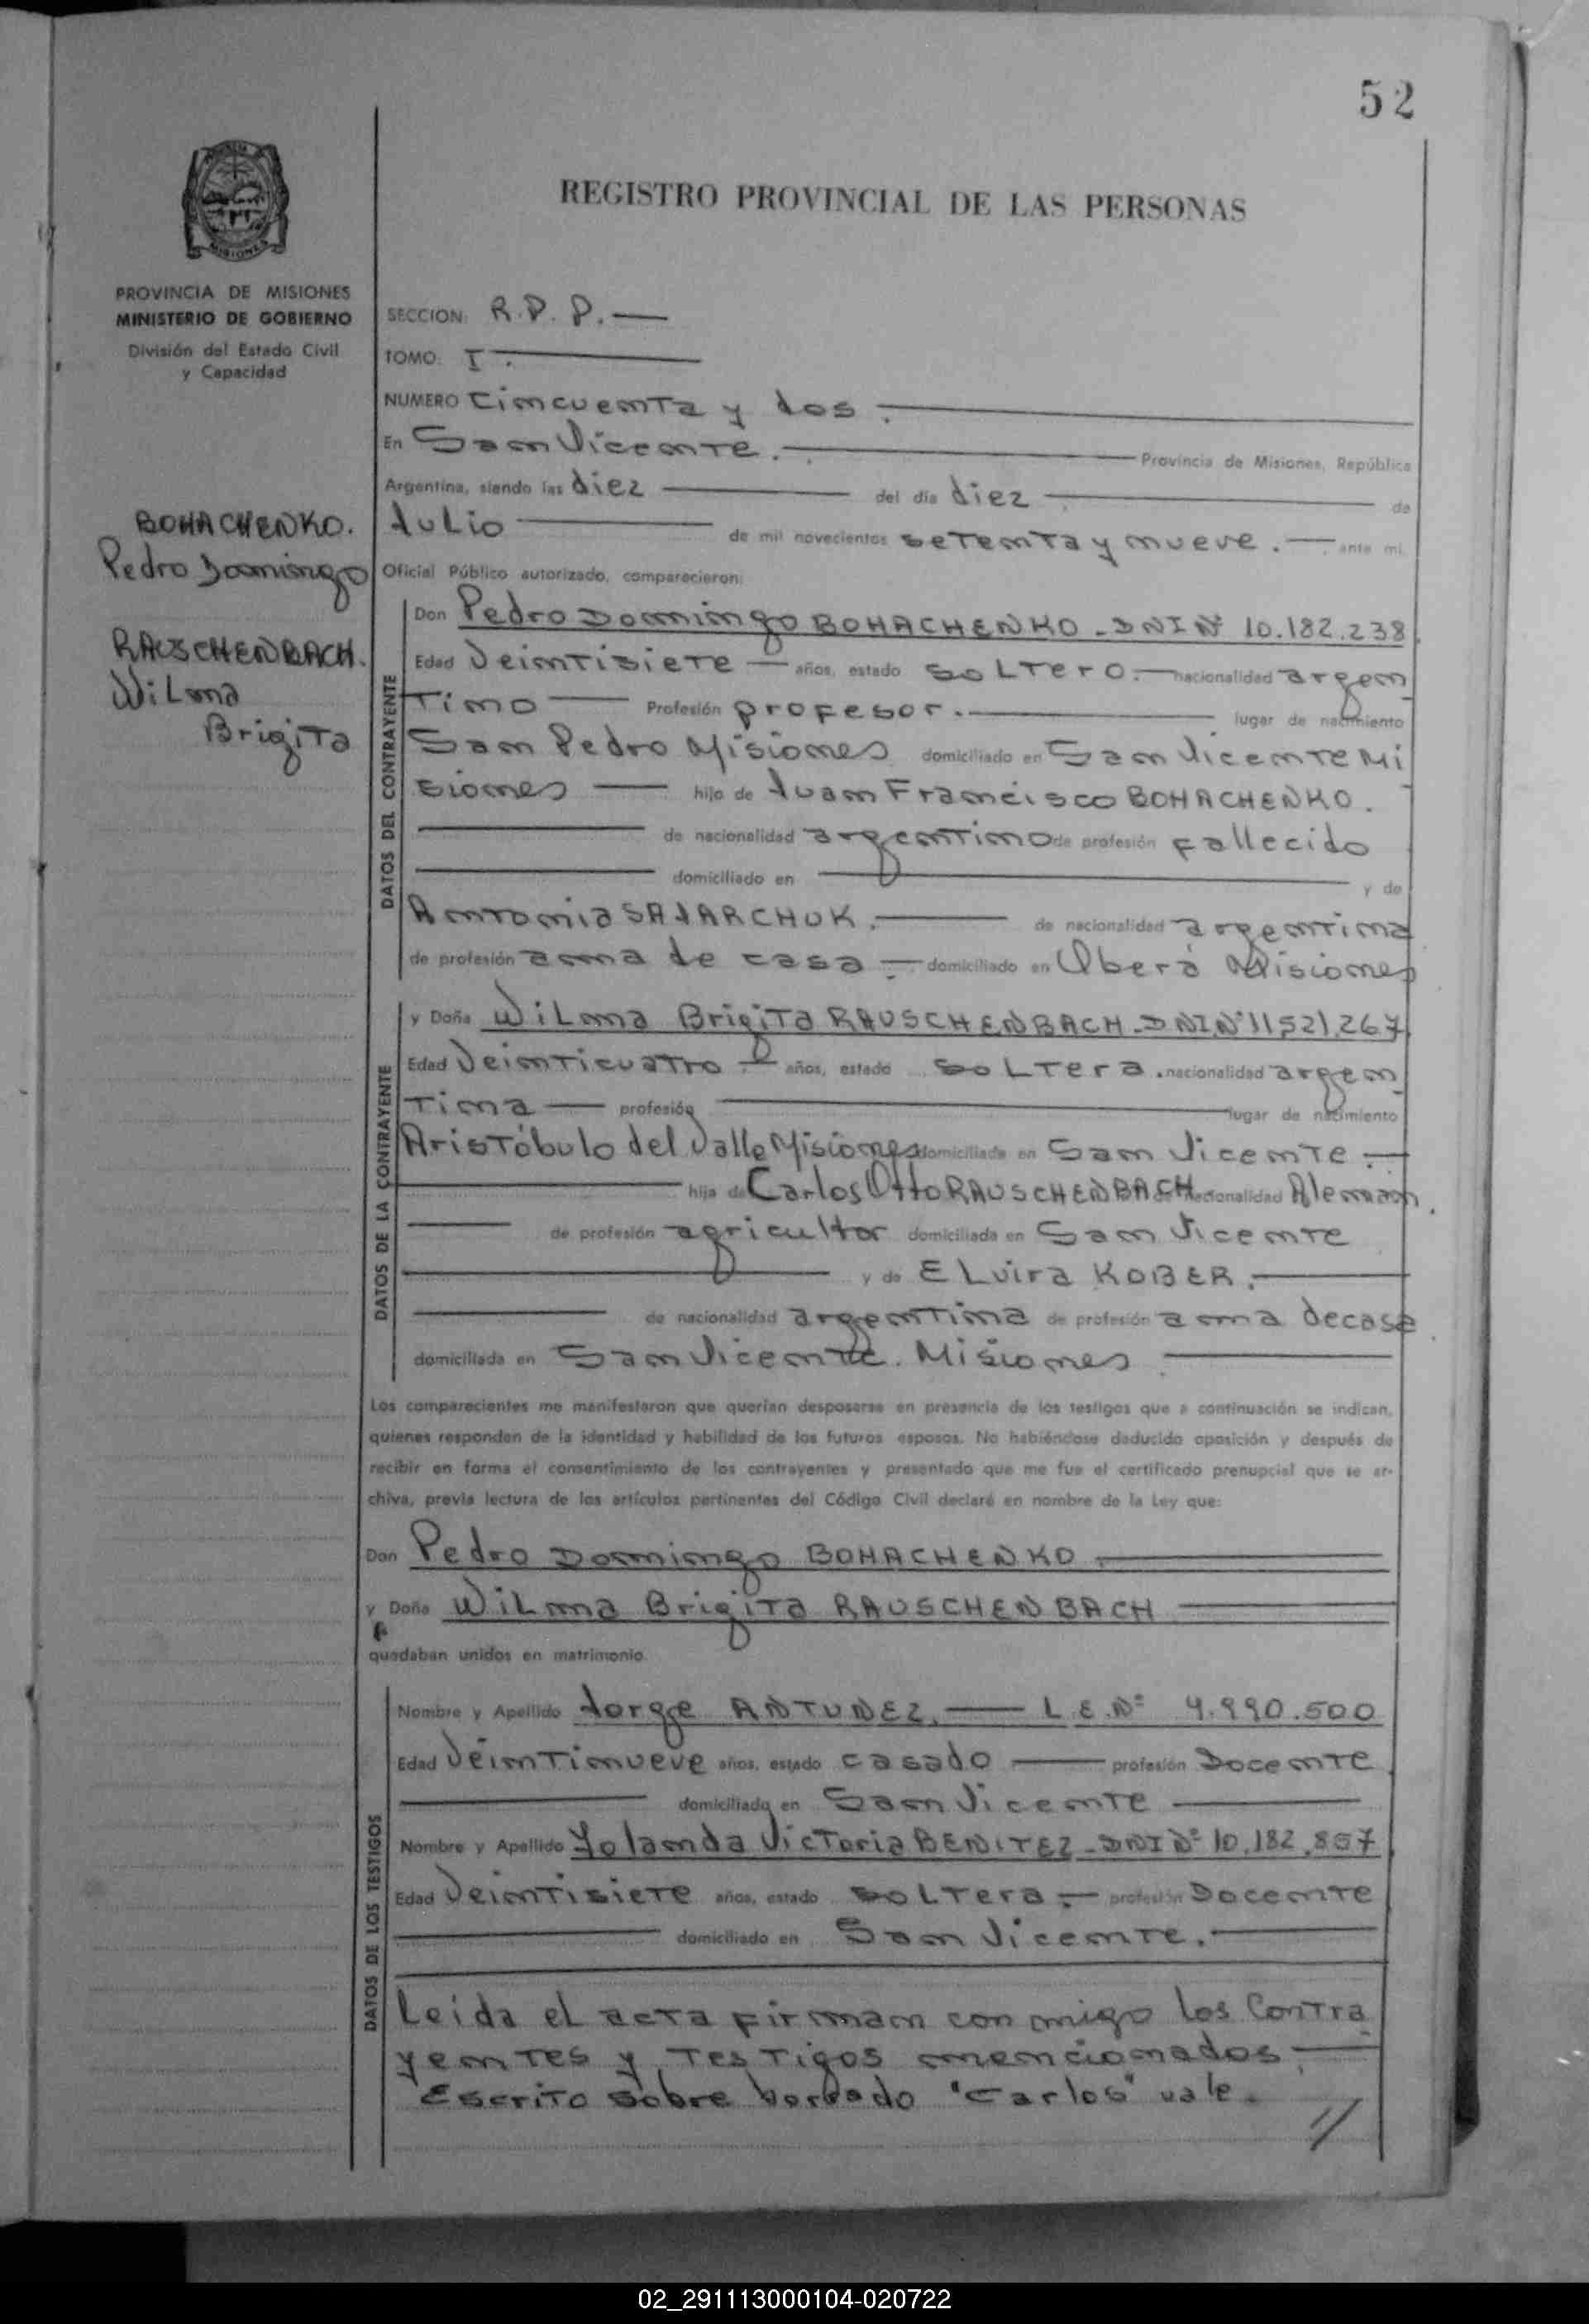 52
REGISTRO PROVINCIAL DE LAS PERSONAS
PROVINCIA DE MISIONES
MINISTERIO DE GOBIERNO
División del Estado Civil
y Capacidad
BOHACHENKO.
Pedro Domingo
RAUSCHENBACH.
Wilma
Brigita
SECCION: R.P.P.—
TOMO: I.
NUMERO Cincuenta y dos.
En San Vicente. Provincia de Misiones, República
Argentina, siendo las diez del día diez de
Julio de mil novecientos setenta y nueve. ante mí
Oficial Público autorizado, comparecieron:
DATOS DEL CONTRAYENTE
Don Pedro Domingo BOHACHENKO - DNI Nº 10.182.238
Edad Veintisiete — años, estado soltero.— nacionalidad argen
tino — Profesión profesor. — lugar de nacimiento
San Pedro Misiones domiciliado en San Vicente Mi
siones — hijo de Juan Francisco BOHACHENKO.
de nacionalidad argentino de profesión fallecido
domiciliado en — y de
Antonia SAJARCHUK. — de nacionalidad argentina
de profesión ama de casa — domiciliado en Oberá Misiones
DATOS DE LA CONTRAYENTE
y Doña Wilma Brigita RAUSCHENBACH - DNI.Nº 11.521.267
Edad Veinticuatro — años, estado soltera. nacionalidad argen
tina — profesión — lugar de nacimiento
Aristóbulo del Valle Misiones domiciliada en San Vicente —
hija de Carlos Otto RAUSCHENBACH nacionalidad Aleman.
de profesión agricultor domiciliada en San Vicente
y de Elvira KOBER.
de nacionalidad argentina de profesión ama de casa
domiciliada en San Vicente. Misiones
Los comparecientes me manifestaron que querían desposarse en presencia de los testigos que a continuación se indican,
quienes responden de la identidad y habilidad de los futuros esposos. No habiéndose deducido oposición y después de
recibir en forma el consentimiento de los contrayentes y presentado que me fue el certificado prenupcial que se ar-
chiva, previa lectura de los artículos pertinentes del Código Civil declaré en nombre de la Ley que:
Don Pedro Domingo BOHACHENKO
y Doña Wilma Brigita RAUSCHENBACH
quedaban unidos en matrimonio.
DATOS DE LOS TESTIGOS
Nombre y Apellido Jorge ANTUNEZ. — L.E.Nº 4.990.500
Edad Veintinueve años, estado casado — profesión Docente
domiciliado en San Vicente
Nombre y Apellido Yolanda Victoria BENITEZ - DNI Nº 10.182.857
Edad Veintisiete años, estado soltera — profesión Docente
domiciliado en San Vicente.
Leida el acta firman con migo los Contra
yentes y testigos mencionados —
Escrito sobre borrado "Carlos" vale.
//
02_291113000104-020722